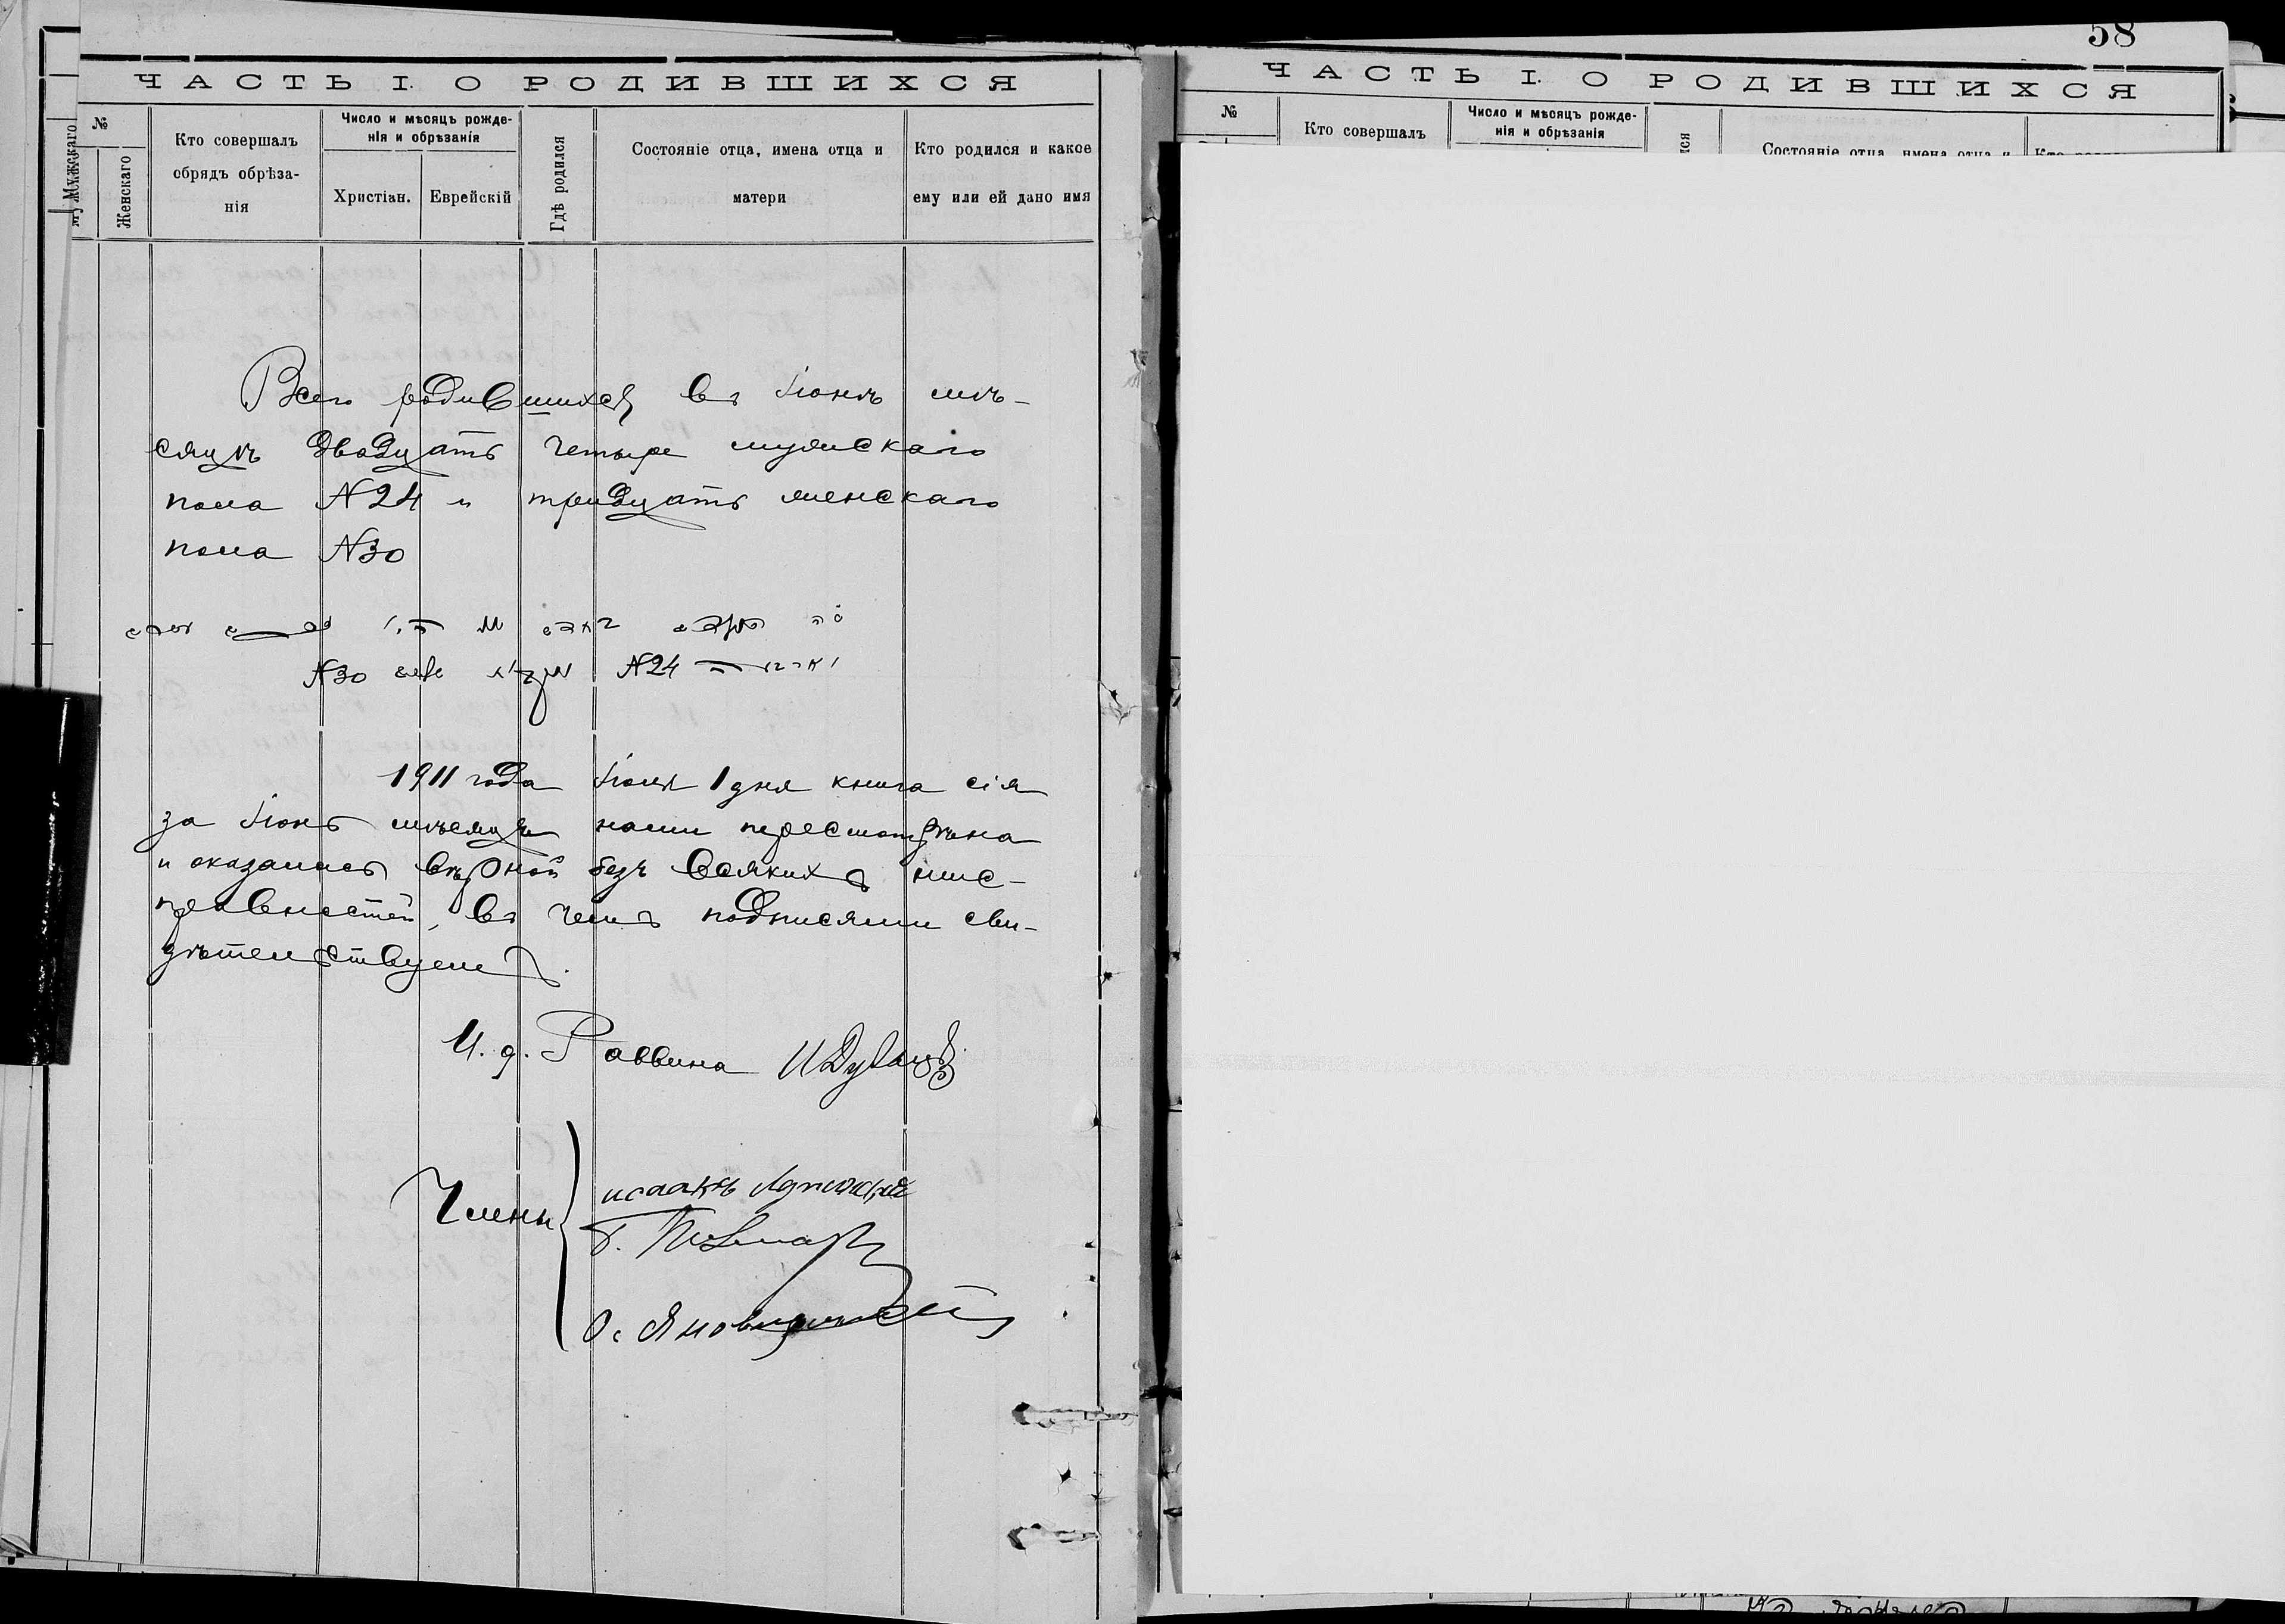 58
ЧАСТЬ I. О РОДИВШИХСЯ
№
Мужскаго
Женскаго
Кто совершалъ
обрядъ обрѣза-
нія
Число и мѣсяцъ рожде-
нія и обрѣзанія
Христіан.
Еврейскій
Гдѣ родился
Состояніе отца, имена отца и
матери
Кто родился и какое
ему или ей дано имя
Всего родившихся въ Іюнѣ мѣ-
сяцѣ двадцать четыре мужскаго
пола N24 и тридцать женскаго
пола N30
N24
N30
1911 года Іюля 1 дня книга сія
за Іюнь мѣсяцъ нами пересмотрѣна
и оказалась вѣрной безъ всякихъ неис-
правностей, въ чемъ подписями сви-
дѣтельствуемъ.
И. д. Раввина
Члены
Исаакъ
О. Яновицкій
ЧАСТЬ I. О РОДИВШИХСЯ
№
Кто совершалъ
Число и мѣсяцъ рожде-
нія и обрѣзанія
Состояніе отца, имена отца и